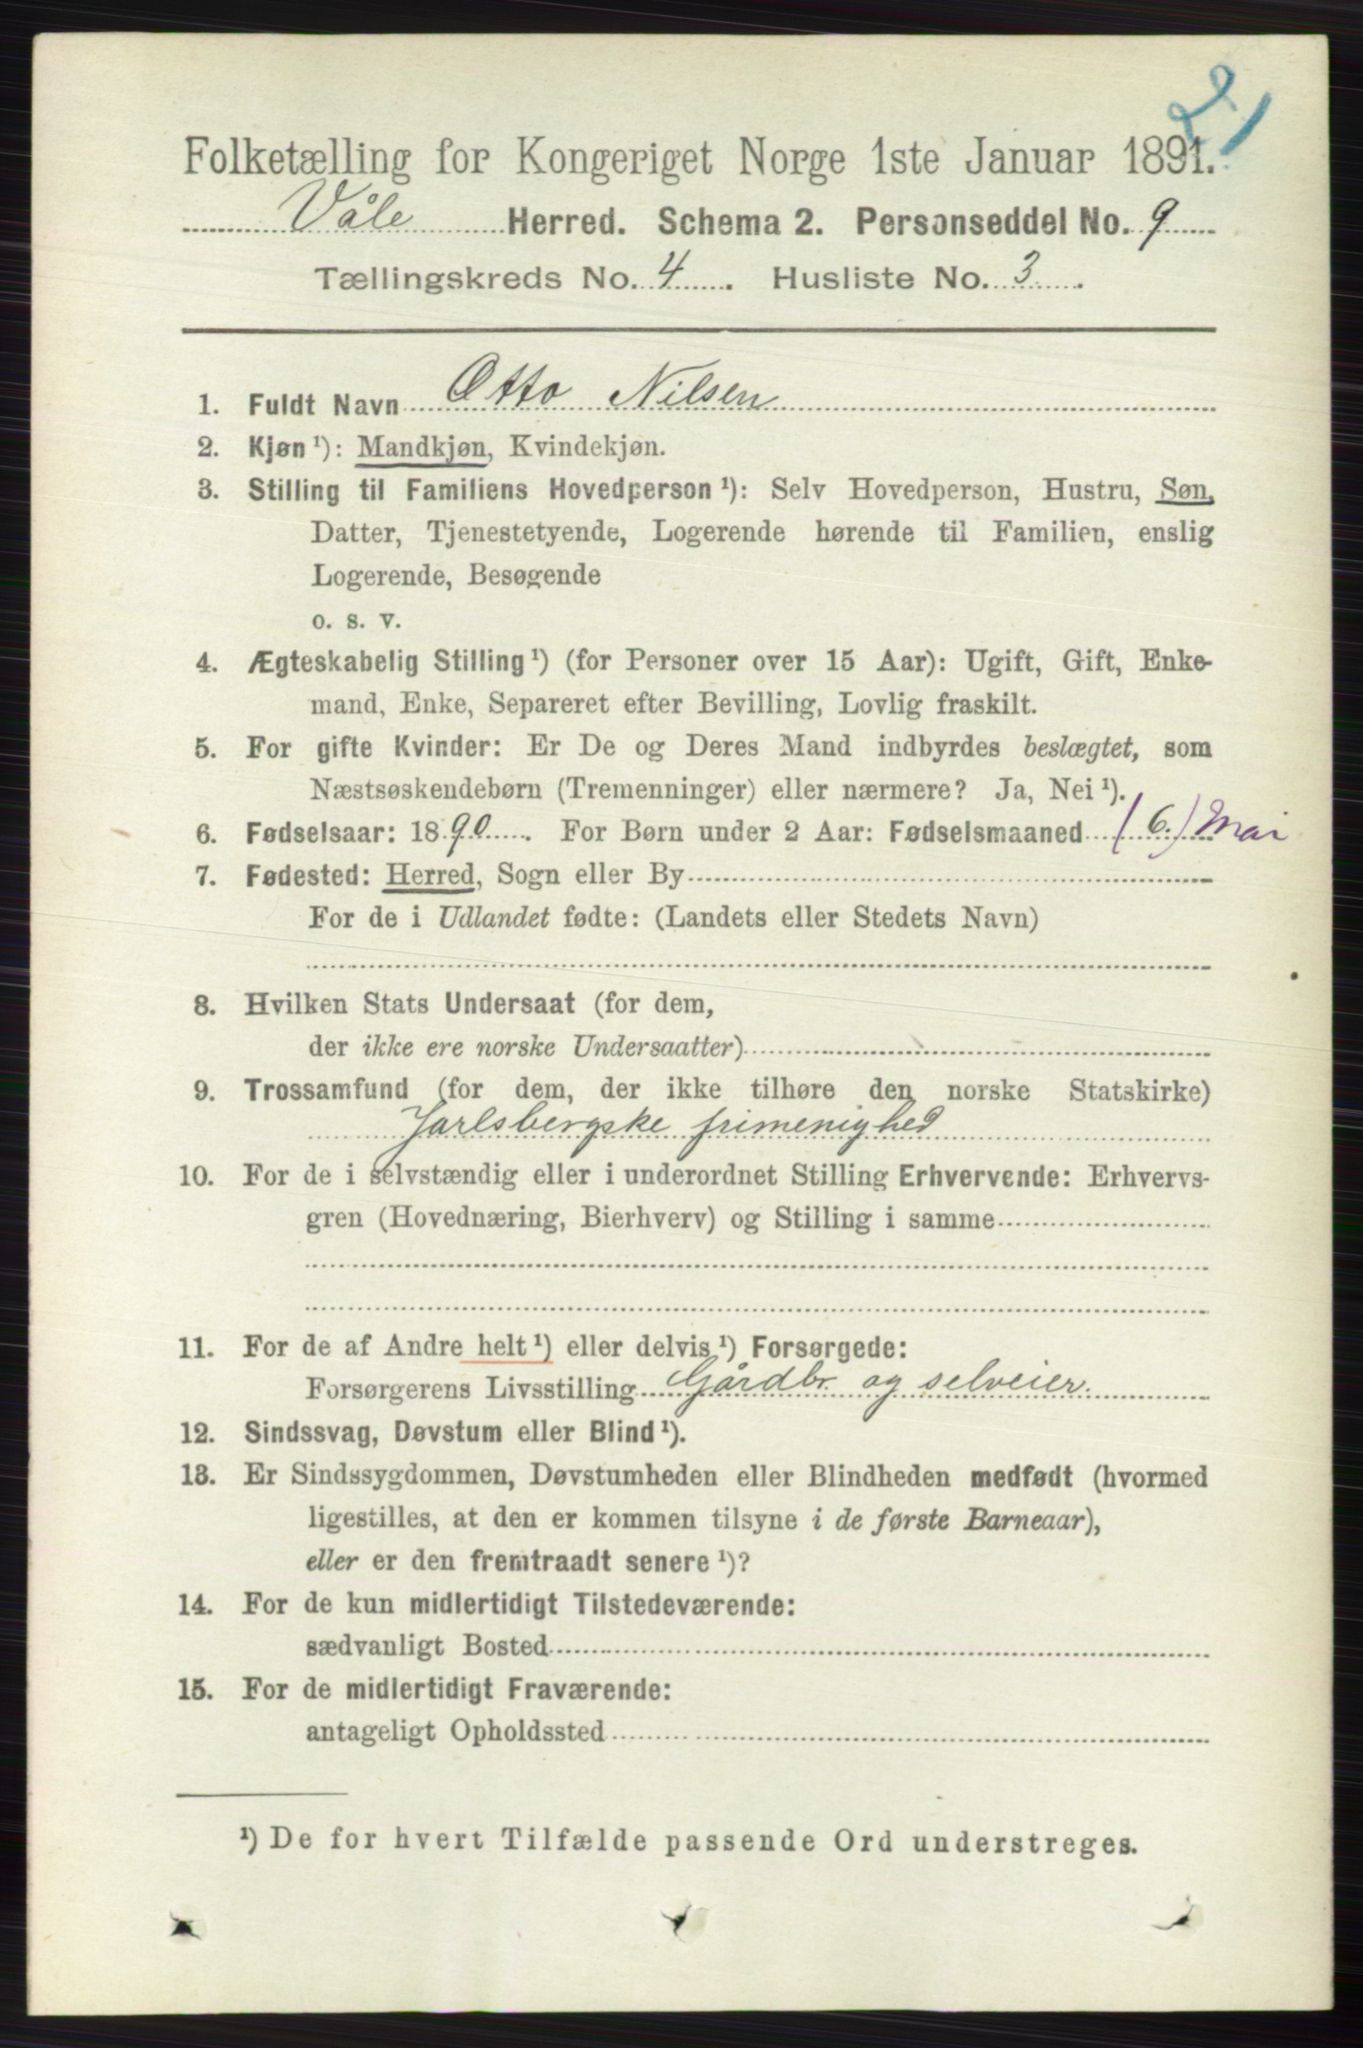 21
Folketælling for Kongeriget Norge 1ste Januar 1891.
Våle Herred. Schema 2. Personseddel No. 9
Tællingskreds No. 4. Husliste No. 3.
1. Fuldt Navn Otto Nilsen
2. Kjøn ¹): Mandkjøn, Kvindekjøn.
3. Stilling til Familiens Hovedperson ¹): Selv Hovedperson, Hustru, Søn,
Datter, Tjenestetyende, Logerende hørende til Familien, enslig
Logerende, Besøgende
o. s. v.
4. Ægteskabelig Stilling ¹) (for Personer over 15 Aar): Ugift, Gift, Enke-
mand, Enke, Separeret efter Bevilling, Lovlig fraskilt.
5. For gifte Kvinder: Er De og Deres Mand indbyrdes beslægtet, som
Næstsøskendebørn (Tremenninger) eller nærmere? Ja, Nei ¹).
6. Fødselsaar: 1890. For Børn under 2 Aar: Fødselsmaaned (6.) Mai
7. Fødested: Herred, Sogn eller By
For de i Udlandet fødte: (Landets eller Stedets Navn)
8. Hvilken Stats Undersaat (for dem,
der ikke ere norske Undersaatter)
9. Trossamfund (for dem, der ikke tilhøre den norske Statskirke)
Jarlsbergske frimenighed
10. For de i selvstændig eller i underordnet Stilling Erhvervende: Erhvervs-
gren (Hovednæring, Bierhverv) og Stilling i samme
11. For de af Andre helt ¹) eller delvis ¹) Forsørgede:
Forsørgerens Livsstilling Gårdbr. og selveier.
12. Sindssvag, Døvstum eller Blind ¹).
13. Er Sindssygdommen, Døvstumheden eller Blindheden medfødt (hvormed
ligestilles, at den er kommen tilsyne i de første Barneaar),
eller er den fremtraadt senere ¹)?
14. For de kun midlertidigt Tilstedeværende:
sædvanligt Bosted
15. For de midlertidigt Fraværende:
antageligt Opholdssted
¹) De for hvert Tilfælde passende Ord understreges.